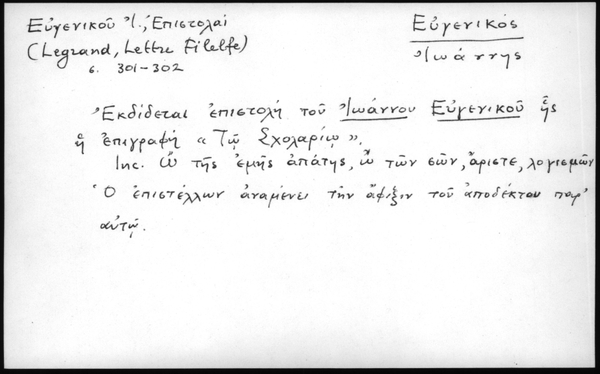 Εὐγενικοῦ Ἰ., Ἐπιστολαί
(Legrand, Lettre Filelfe)
σ. 301-302
Εὐγενικός
Ἰωάννης
Ἐκδίδεται ἐπιστολή τοῦ Ἰωάννου Εὐγενικοῦ ἧς
ἡ ἐπιγραφή « Τῷ Σχολαρίῳ ».
Inc. Ὢ τῆς ἐμῆς ἀπάτης, ὢ τῶν σῶν, ἄριστε, λογισμῶν
Ὁ ἐπιστέλλων ἀναμένει τὴν ἄφιξιν τοῦ ἀποδέκτου παρ'
αὐτῷ.